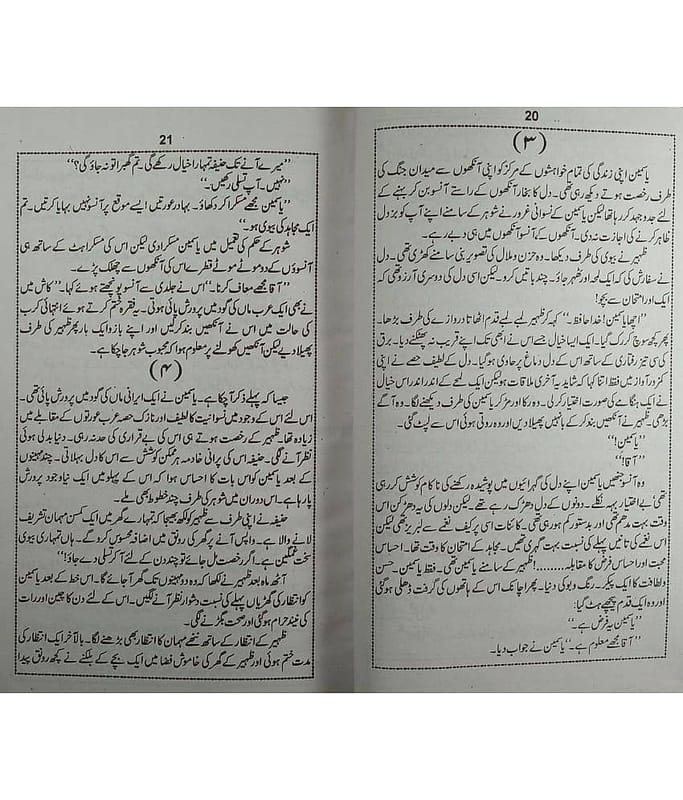 20
(۳)
یاسمین اپنی زندگی کی تمام خواہشوں کے مرکز کو اپنی آنکھوں سے میدان جنگ کی
طرف رخصت ہوتے دیکھ رہی تھی۔ دل کا بخار آنکھوں کے راستے آنسو بن کر بہنے کے
لئے جدوجہد کر رہا تھا لیکن یاسمین کے نسوانی غرور نے شوہر کے سامنے اپنے آپ کو بزدل
ظاہر کرنے کی اجازت نہ دی۔ آنکھوں کے آنسو آنکھوں میں ہی دبے رہے۔
ظہیر نے بیوی کی طرف دیکھا۔ وہ حزن و ملال کی تصویر بنی سامنے کھڑی تھی۔ دل
نے سفارش کی کہ ایک لمحہ اور ٹھہر جاؤ۔ چند باتیں کرو۔ لیکن اسی دل کی دوسری آرزو تھی کہ
ایک اور امتحان سے بچو!
”اچھا یاسمین! خدا حافظ۔“ کہہ کر ظہیر لمبے لمبے قدم اٹھاتا دروازے کی طرف بڑھا۔
پھر کچھ سوچ کر رک گیا۔ ایک ایسا خیال جسے اس نے ابھی تک اپنے قریب نہ پھٹکنے دیا۔ برق
کی سی تیز رفتاری کے ساتھ اس کے دل و دماغ پر حاوی ہو گیا۔ دل کے لطیف حصے نے اپنی
کمزور آواز میں فقط اتنا کہا کہ شاید یہ آخری ملاقات ہو لیکن ایک لمحے کے اندر اندر اس خیال
نے ایک ہنگامے کی صورت اختیار کر لی۔ وہ رکا اور مڑ کر یاسمین کی طرف دیکھنے لگا۔ وہ آگے
بڑھی۔ ظہیر نے آنکھیں بند کر کے بانہیں پھیلا دیں اور وہ روتی ہوئی اس سے لپٹ گئی۔
”یاسمین!“
”آقا!“
وہ آنسو جنھیں یاسمین اپنے دل کی گہرائیوں میں پوشیدہ رکھنے کی ناکام کوشش کر رہی
تھی بے اختیار بہہ نکلے۔ دونوں کے دل دھڑک رہے تھے۔ لیکن دلوں کی یہ دھڑکن اس
وقت بہت مدھم تھی اور بدستور کم ہو رہی تھی۔ کائنات اسی پر کیف نغمے سے لبریز تھی لیکن
اس نغمے کی تانیں پہلے کی نسبت بہت گہری تھیں۔ مجاہد کے امتحان کا وقت تھا۔ احساس
محبت اور احساس فرض کا مقابلہ........! ظہیر کے سامنے یاسمین تھی۔ فقط یاسمین۔ حسن
و لطافت کا ایک پیکر۔ رنگ و بو کی دنیا۔ پھر اچانک اس کے ہاتھوں کی گرفت ڈھیلی ہو گئی
اور وہ ایک قدم پیچھے ہٹ گیا:
”یاسمین یہ فرض ہے۔“
”آقا مجھے معلوم ہے۔“ یاسمین نے جواب دیا۔
21
”میرے آنے تک حنیفہ تمہارا خیال رکھے گی۔ تم گھبرا تو نہ جاؤ گی؟“
”نہیں۔ آپ تسلی رکھیں۔“
”یاسمین مجھے مسکرا کر دکھاؤ۔ بہادر عورتیں ایسے موقع پر آنسو نہیں بہایا کرتیں۔ تم
ایک مجاہد کی بیوی ہو۔“
شوہر کے حکم کی تعمیل میں یاسمین مسکرا دی لیکن اس کی مسکراہٹ کے ساتھ ہی
آنسوؤں کے دو موٹے موٹے قطرے اس کی آنکھوں سے چھلک پڑے۔
”آقا مجھے معاف کرنا۔“ اس نے جلدی سے آنسو پونچھتے ہوئے کہا۔ ”کاش میں
نے بھی ایک عرب ماں کی گود میں پرورش پائی ہوتی۔ یہ فقرہ ختم کرتے ہوئے انتہائی کرب
کی حالت میں اس نے آنکھیں بند کر لیں اور اپنے بازو ایک بار پھر ظہیر کی طرف
پھیلا دیے لیکن آنکھیں کھولنے پر معلوم ہوا کہ محبوب شوہر جا چکا ہے۔
(۴)
جیسا کہ پہلے ذکر آ چکا ہے۔ یاسمین نے ایک ایرانی ماں کی گود میں پرورش پائی تھی۔
اس لئے اس کے وجود میں نسوانیت کا لطیف اور نازک حصہ عرب عورتوں کے مقابلے میں
زیادہ تھا۔ ظہیر کے رخصت ہوتے ہی اس کی بے قراری کی حد نہ رہی۔ دنیا بدلی ہوئی
نظر آنے لگی۔ حنیفہ اس کی پرانی خادمہ ہر ممکن کوشش سے اس کا دل بہلاتی۔ چند مہینوں
کے بعد یاسمین کو اس بات کا احساس ہوا کہ اس کے پہلو میں ایک نیا وجود پرورش
پا رہا ہے۔ اس دوران میں شوہر کی طرف چند خطوط بھی ملے۔
حنیفہ نے اپنی طرف سے ظہیر کو لکھ بھیجا کہ تمہارے گھر میں ایک کمسن مہمان تشریف
لانے والا ہے۔ واپس آنے پر گھر کی رونق میں اضافہ محسوس کرو گے۔ ہاں تمہاری بیوی
سخت غمگین ہے۔ اگر رخصت مل جائے تو چند دن کے لئے آ کر تسلی دے جاؤ!“
آٹھ ماہ بعد ظہیر نے لکھا کہ وہ دو مہینوں تک گھر آ جائے گا۔ اس خط کے بعد یاسمین
کو انتظار کی گھڑیاں پہلے کی نسبت دشوار نظر آنے لگیں۔ اس کے لئے دن کا چین اور رات
کی نیند حرام ہو گئی اور صحت بگڑنے لگی۔
ظہیر کے انتظار کے ساتھ ننھے مہمان کا انتظار بھی بڑھنے لگا۔ بالآخر ایک انتظار کی
مدت ختم ہوئی اور ظہیر کے گھر کی خاموش فضا میں ایک بچے کے بلکنے نے کچھ رونق پیدا